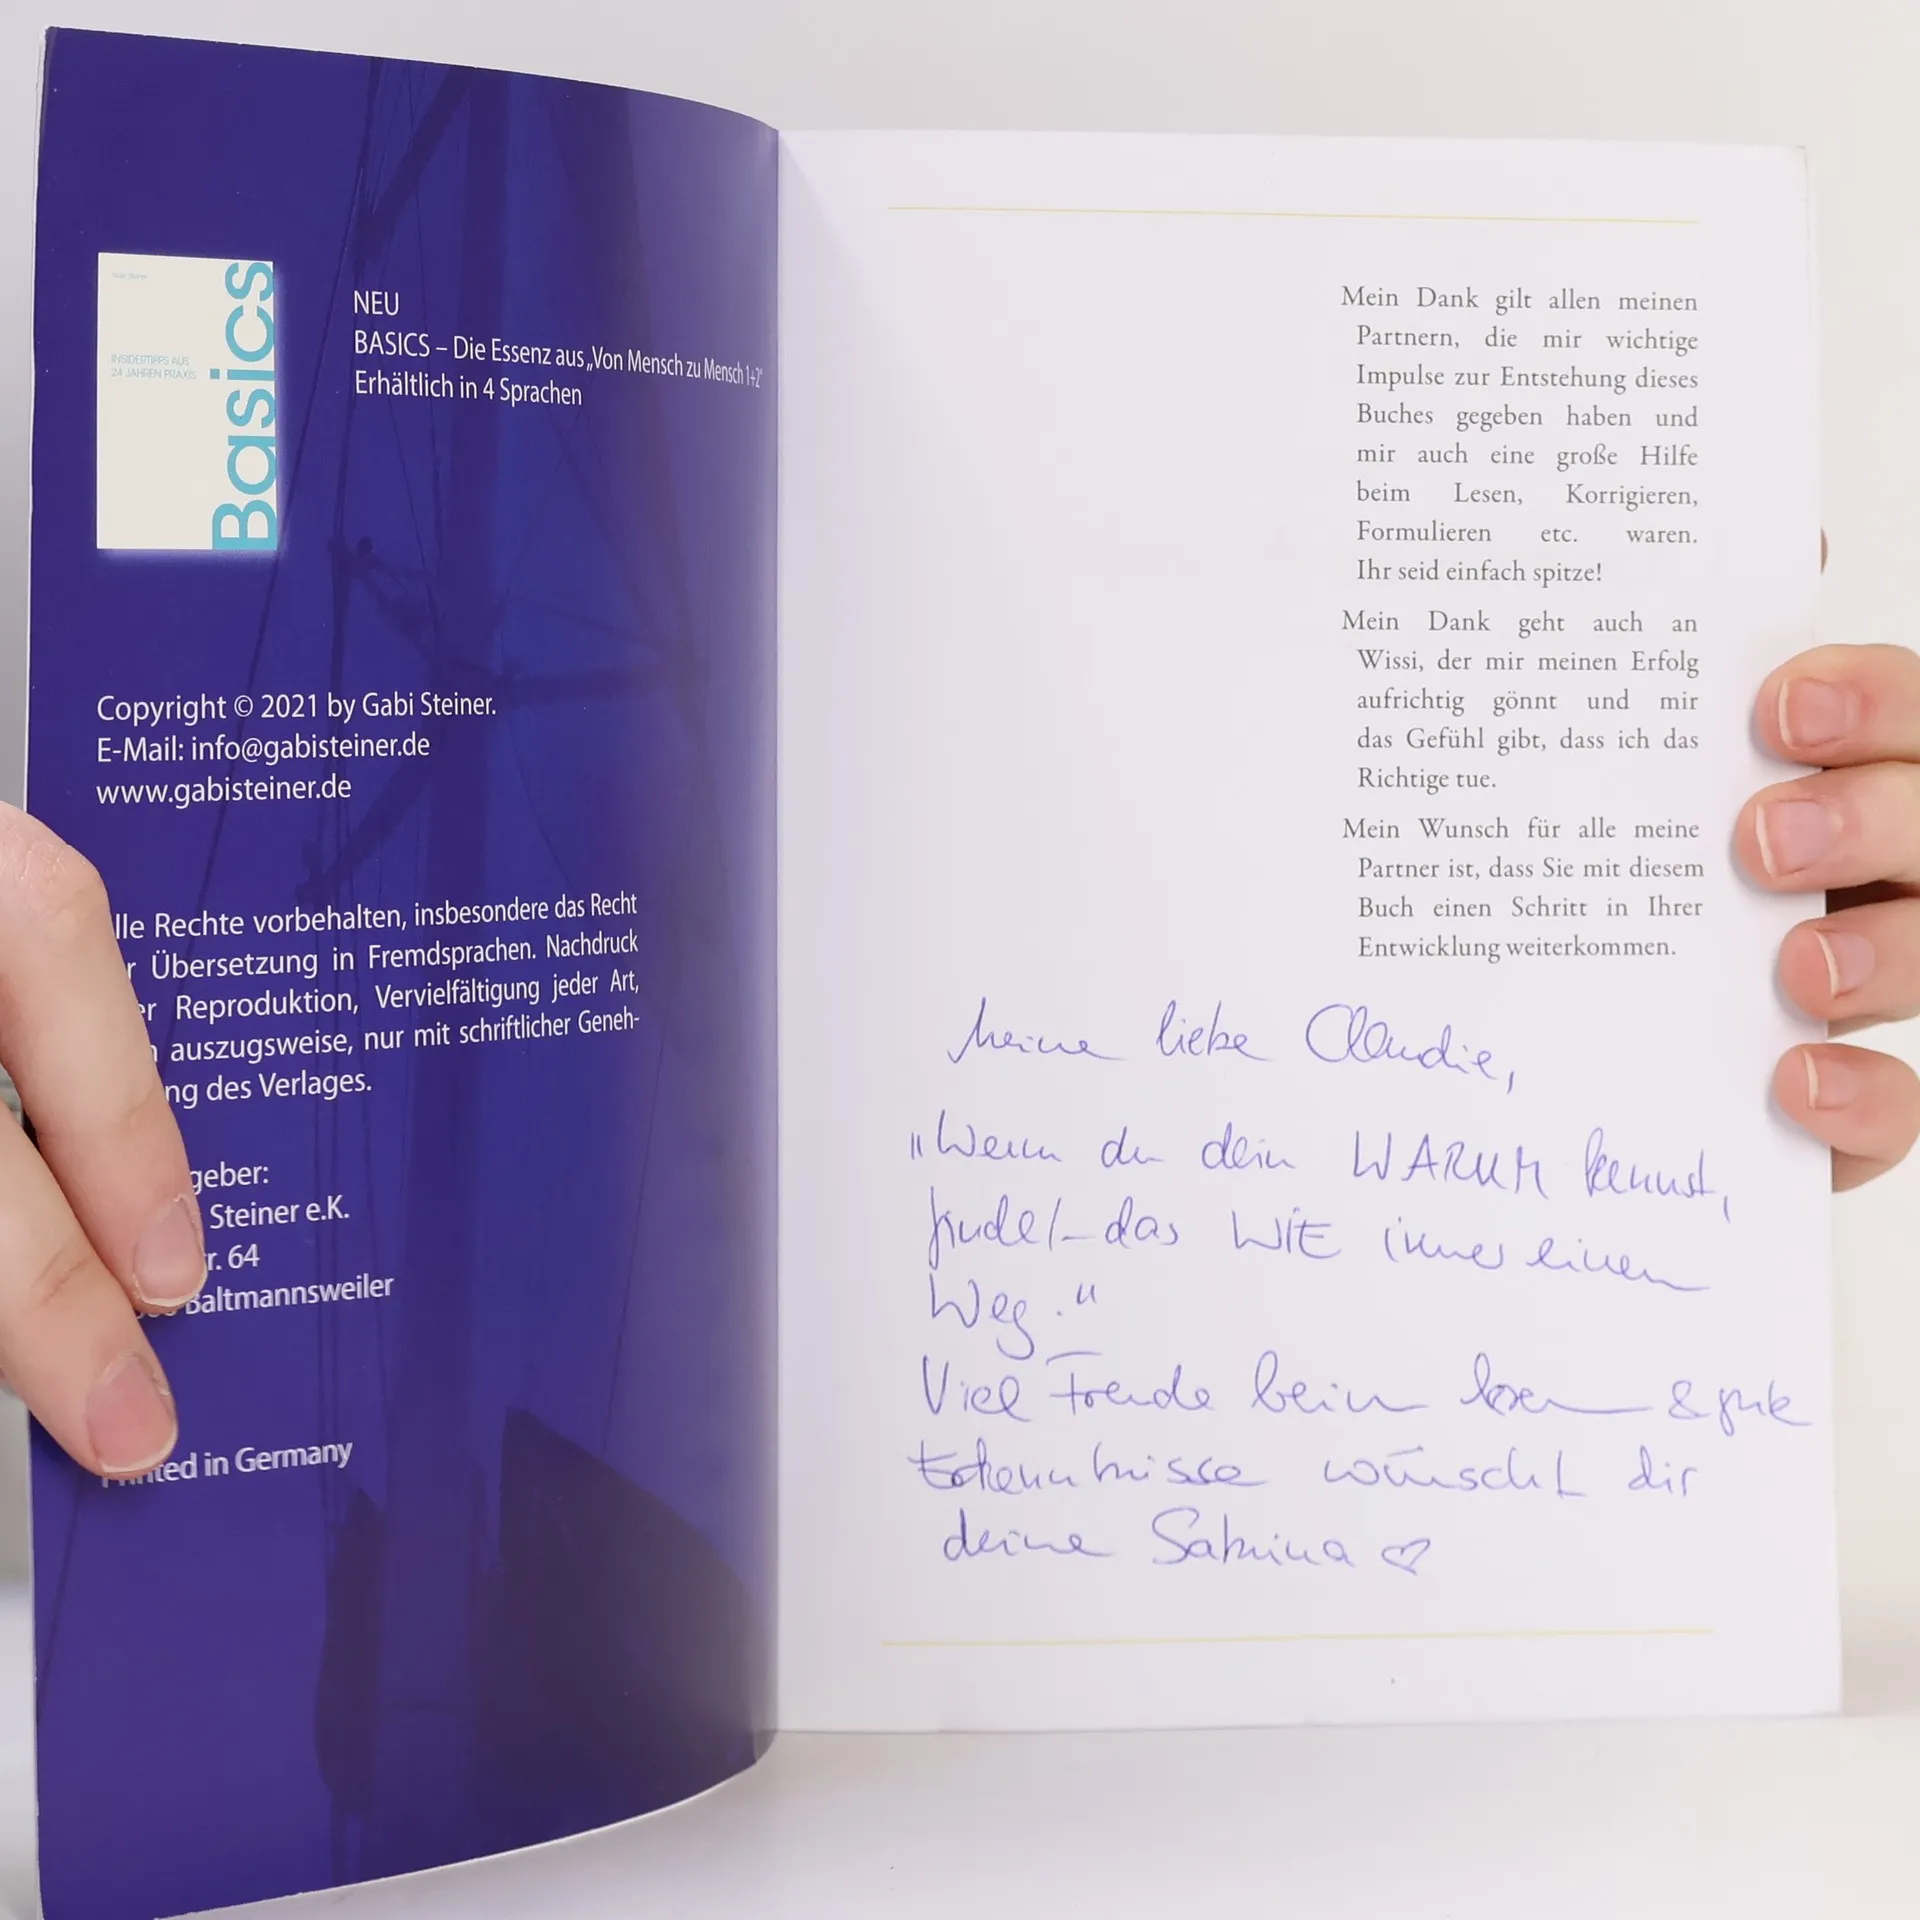 Gabi Steiner
INSIDERTIPPS AUS
24 JAHREN PRAXIS
Basics
NEU
BASICS – Die Essenz aus „Von Mensch zu Mensch 1+2“
Erhältlich in 4 Sprachen
Copyright © 2021 by Gabi Steiner.
E-Mail: info@gabisteiner.de
www.gabisteiner.de
lle Rechte vorbehalten, insbesondere das Recht
r Übersetzung in Fremdsprachen. Nachdruck
er Reproduktion, Vervielfältigung jeder Art,
auszugsweise, nur mit schriftlicher Geneh-
ng des Verlages.
geber:
Steiner e.K.
r. 64
Baltmannsweiler
Printed in Germany
Mein Dank gilt allen meinen
Partnern, die mir wichtige
Impulse zur Entstehung dieses
Buches gegeben haben und
mir auch eine große Hilfe
beim Lesen, Korrigieren,
Formulieren etc. waren.
Ihr seid einfach spitze!
Mein Dank geht auch an
Wissi, der mir meinen Erfolg
aufrichtig gönnt und mir
das Gefühl gibt, dass ich das
Richtige tue.
Mein Wunsch für alle meine
Partner ist, dass Sie mit diesem
Buch einen Schritt in Ihrer
Entwicklung weiterkommen.
Meine liebe Claudie,
"Wenn du dein WARUM kennst,
findet das WIE immer einen
Weg."
Viel Freude beim lesen & gute
Erkenntnisse wünscht dir
deine Sabrina ♡